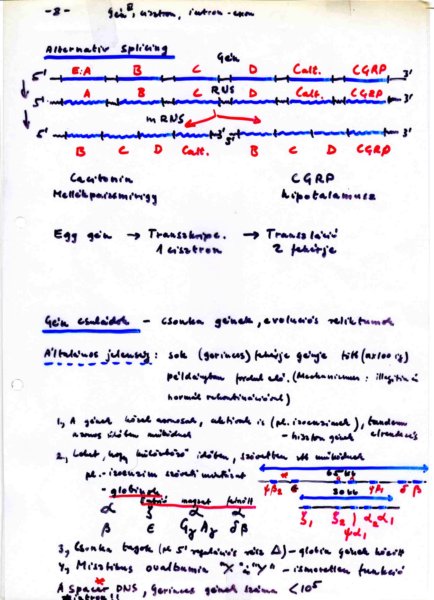 -8- Gén, cisztron, intron-exon
Alternatív splicing
Gén
5' E:A B C D Calt. CGRP 3'
RNS
5' A B C D Calt. CGRP 3'
mRNS
5' 3' 5' 3'
B C D Calt. B C D CGRP
Calcitonin CGRP
Mellékpajzsmirigy hipotalamusz
Egy gén → Transzkripc. → Transzláció
1 cisztron 2 fehérje
Gén családok - csonka gének, evoluciós reliktumok
Általános jelenség: sok (gerinces) fehérje génje több (ax100 ig)
példányban fordul elő. (Mechanizmus: illegitim és
normál rekombinációval)
1, A gének közel azonosak, aktívak is (pl. izoenzimek), tandem
azonos időben működnek - hiszton gének elrendezés
2, Lehet, hogy különböző időben, szövetben stb működnek
pl. - izoenzim szöveti
- globinok 65 kb
ψβ2 ε ψβ1 δ β
magzat felnőtt 30 kb
α ξ α α ξ1 ξ2 ψα1 α2 α1
β ε Gγ Aγ δ β
3, Csonka tagok (pl 5' regulációs rész Δ) - globin gének között
4, Misztikus ovalbumin "X" és "Y" - ismeretlen funkció
A spacer DNS, Gerinces gének száma < 10⁵
* intron!!